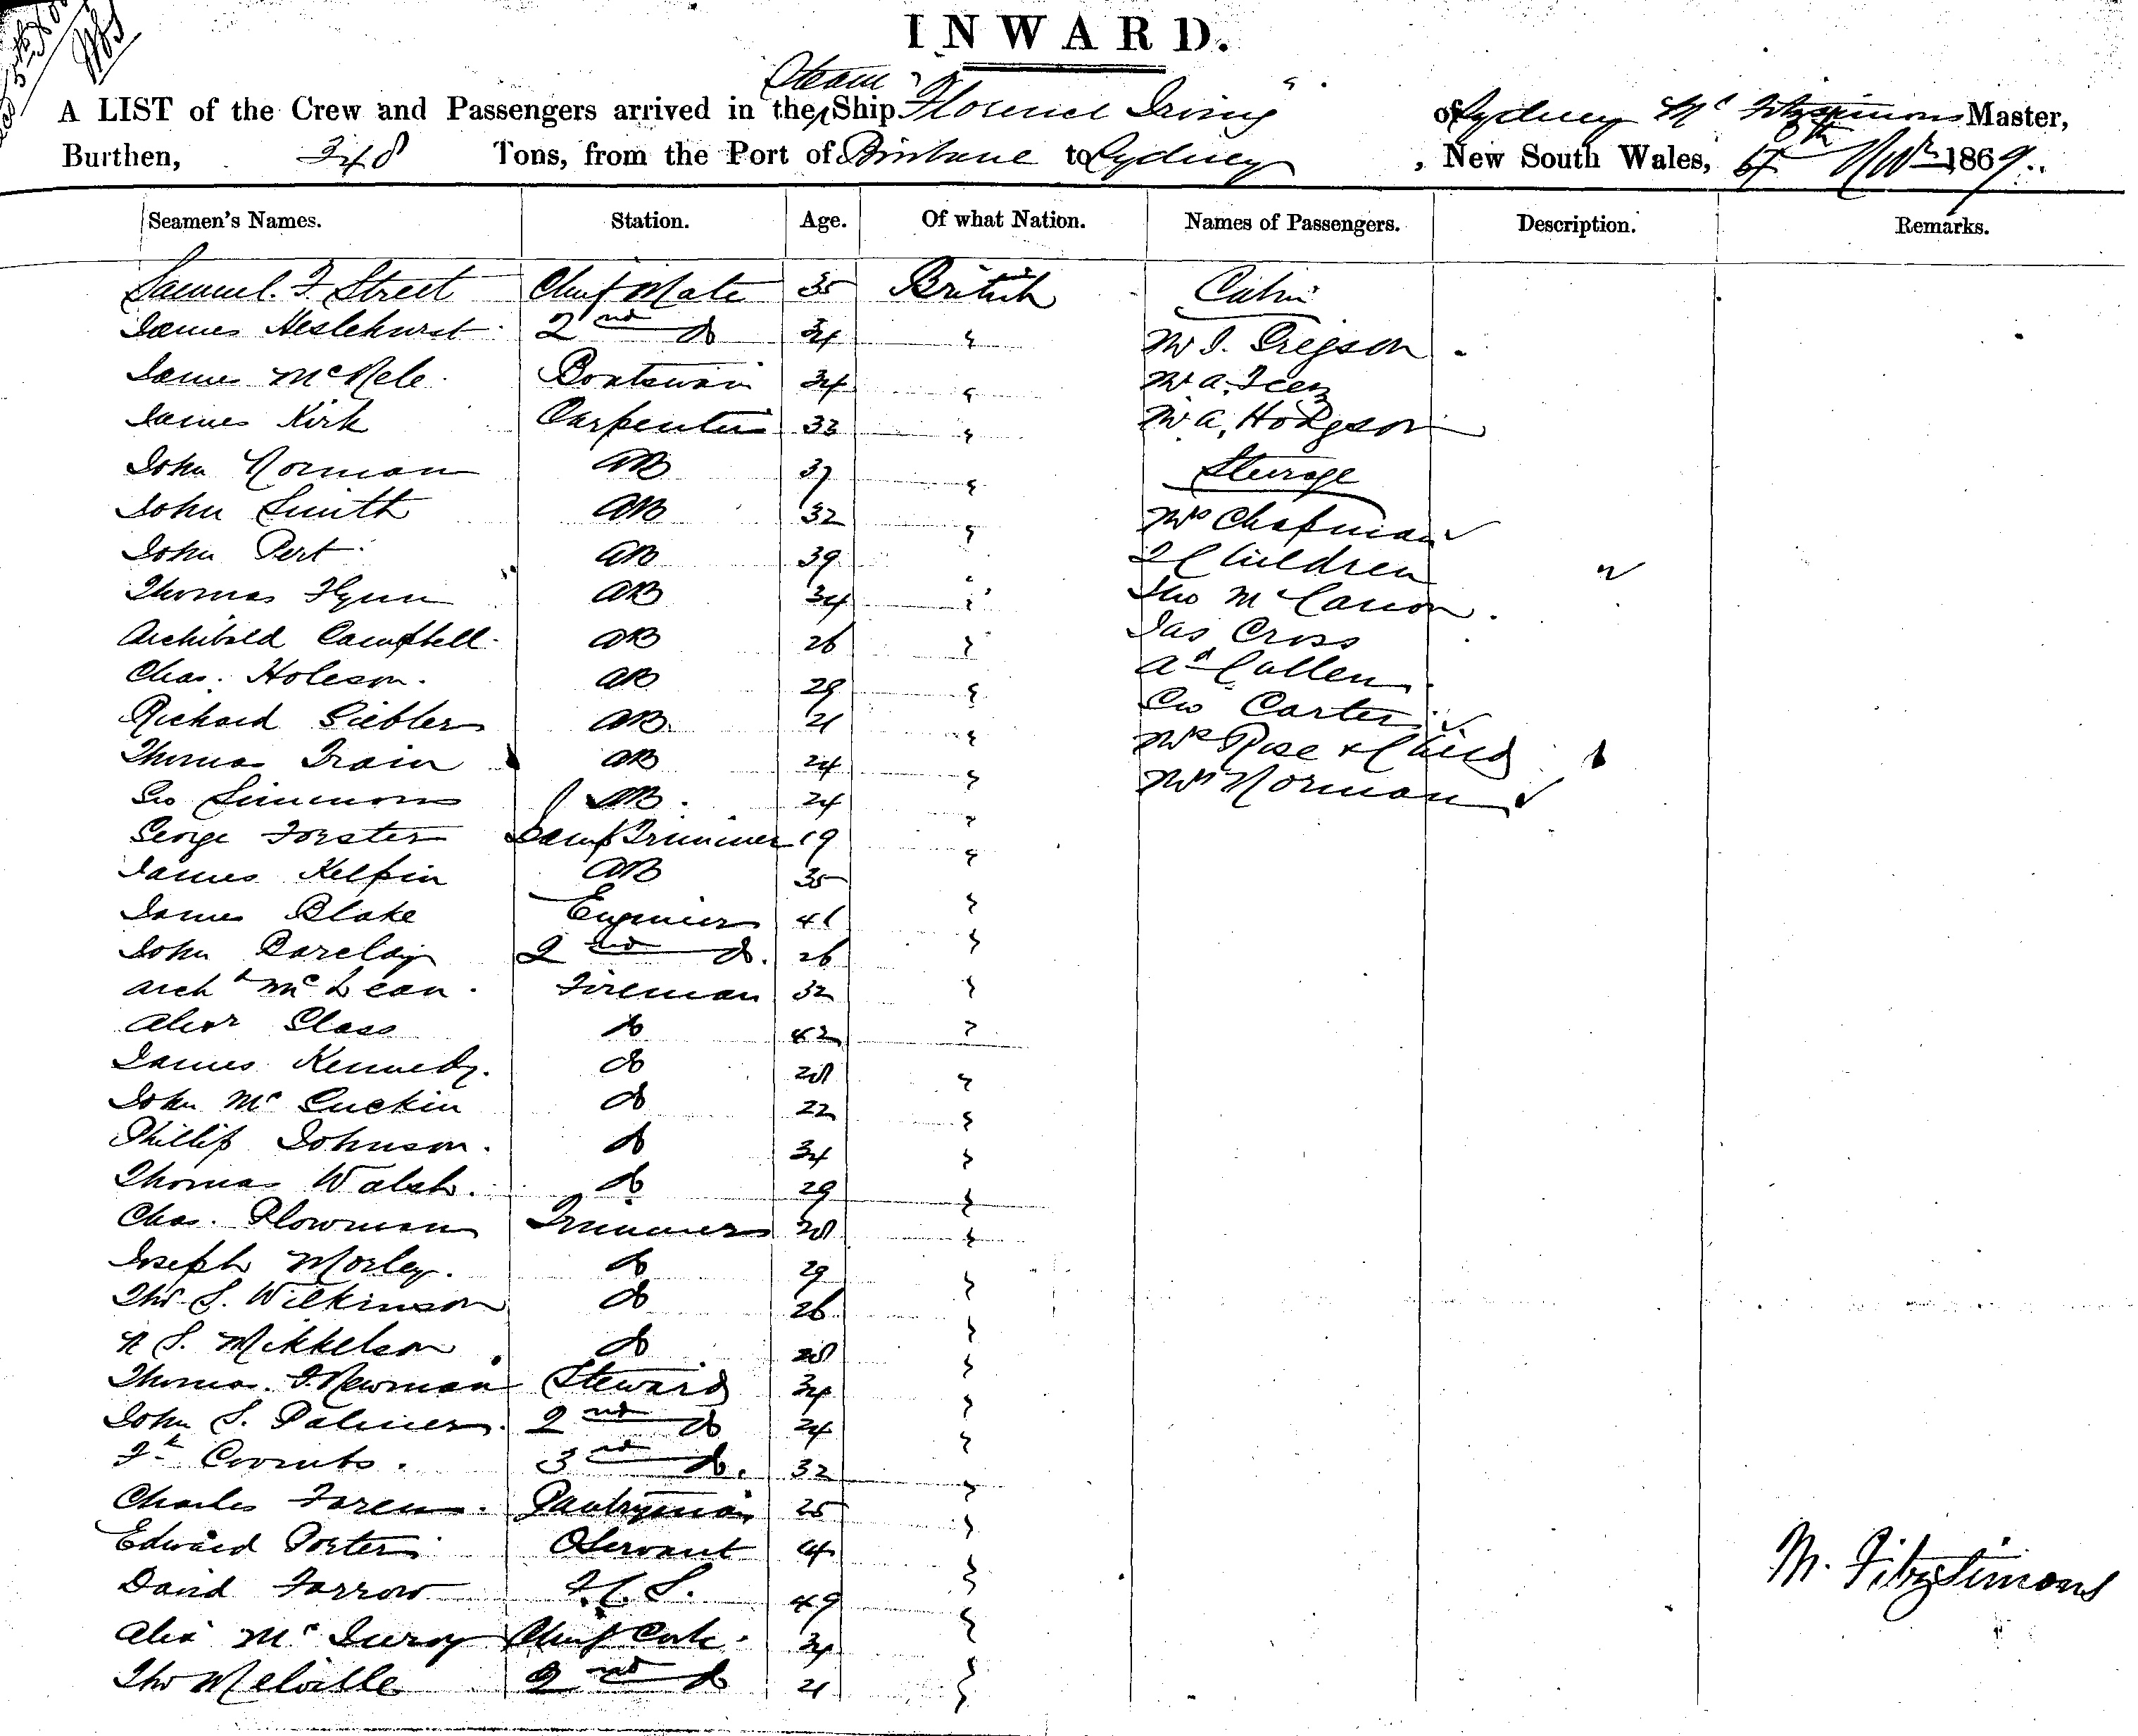 INWARD.
A LIST of the Crew and Passengers arrived in the Steam Ship "Florence Irving" of Sydney Mc Fitzsimons Master,
Burthen, 348 Tons, from the Port of Brisbane to Sydney, New South Wales, 6th Novr 1869.
Seamen's Names. Station. Age. Of what Nation. Names of Passengers. Description. Remarks.
Samuel. F. Street Chief Mate 35 British Cabin
James Heslehurst 2nd do 34 " Mr J. Gregson
James McNele Boatswain 34 " Mr A.
James Kirk Carpenter 33 " Mr A. Hodgson
John Norman AB 37 " Steerage
John Smith AB 32 " Mrs Chapman
John Pert AB 39 " 2 Children
Thomas Flynn AB 34 " Tho
Archibald Campbell AB 26 " Jas Cross
Chas. Holeson AB 29 " Ad Cullen
Richard Siebler AB 21 " Geo Carter
Thomas Train AB 24 " Mrs Rose & Child
Geo Simmons AB 24 " Mrs Norman
George Forster Lamp Trimmer 19 "
James Kelpin AB 35 "
James Blake Engineer 41 "
John Barclay 2nd do. 26 "
Archd McLean Fireman 32 "
Alexr Glass do 42 "
James Kennedy. do 28 "
John McGuckin do 22 "
Phillip Johnson. do 34 "
Thomas Walsh. do 29 "
Chas. Plowman Trimmers 28 "
Joseph Morley. do 29 "
Thos S. Wilkinson do 26 "
N S. Mikkelson do 28 "
Thomas. J. Newman Steward 34 "
John S. Palmer. 2nd do 24 "
Fk Coombs. 3rd do. 32 "
Charles Pantryman 25 "
Edward Porter Servant "
David Farrow F.C.S. 49 "
Alex Mc Chief Cook 34 "
Tho Melville 2nd do 21 "
M. Fitzsimons